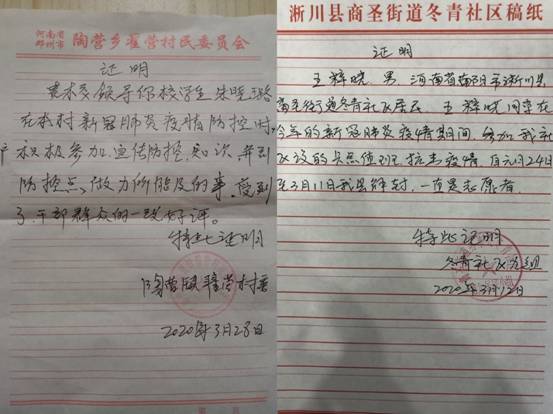 河南省
邓州市 陶营乡崔营村民委员会
证明
贵校领导你校学生朱
在本村新冠肺炎疫情防控时
积极参加宣传防控知识并到
防控点,做力所能及的事,受到
了干部群众的一致好评。
特此证明
陶营
2020年3月28日
淅川县商圣街道冬青社区稿纸
证明
王辉晓 男 河南省南阳市淅川县
商圣街道冬青社区居民 王辉晓同学在
今年的新冠肺炎疫情期间,参加我社
区设的卡点值班,抗击疫情,自元月24日
至3月11日我县解封,一直是志愿者。
特此证明
冬青社区
2020年3月12日